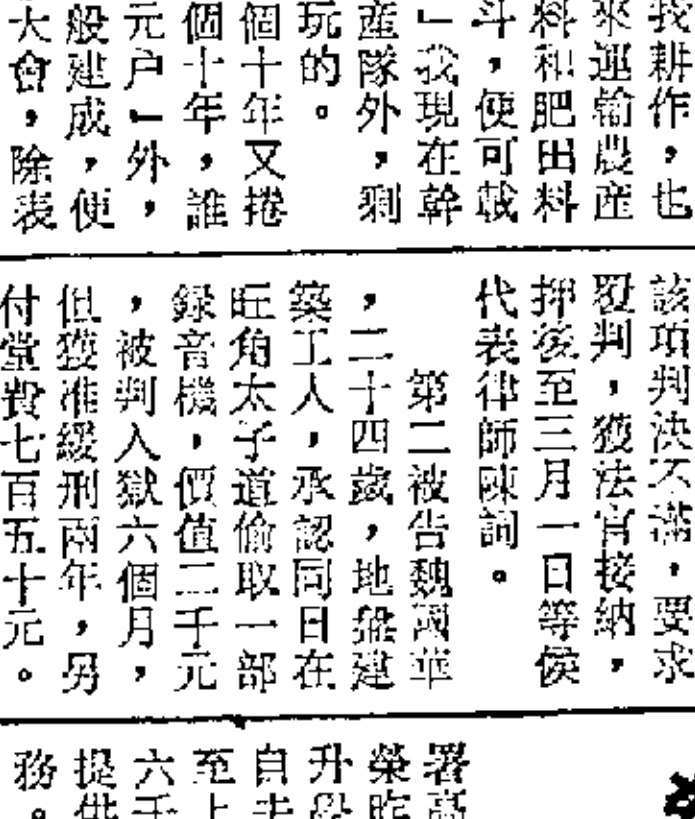 我耕作，也
來運輸農產
料和肥田料
斗，便可載
」我現在幹
產隊外，剩
玩的。
個十年又捲
個十年，誰
元户」外，
般建成，便
大會，除表
該項判決不滿，要求
覆判，獲法官接納，
押後至三月一日等候
代表律師陳詞。
第二被告魏國華
，二十四歲，地盤建
築工人，承認同日在
旺角太子道偷取一部
錄音機，價值二千元
，被判入獄六個月，
但獲准緩刑兩年，另
付堂費七百五十元。
署高
榮昨
升學
自夫
至上
六千
提供
務。